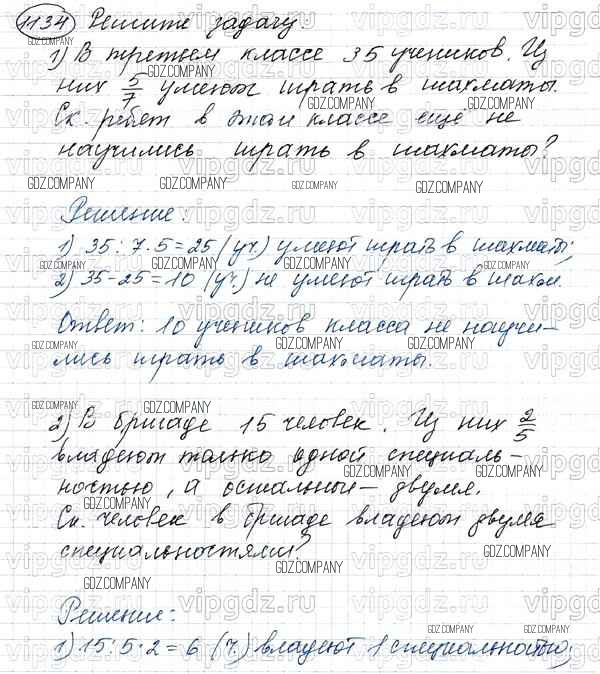 1134 Решите задачу:
1) В третьем классе 35 учеников. Из
них 5/7 умеют играть в шахматы.
Ск. ребят в этом классе ещё не
научились играть в шахматы?
Решение:
1) 35 : 7 · 5 = 25 (уч.) умеют играть в шахматы;
2) 35 - 25 = 10 (уч.) не умеют играть в шахм.
Ответ: 10 учеников класса не научи-
лись играть в шахматы.
2) В бригаде 15 человек. Из них 2/5
владеют только одной специаль-
ностью, а остальные - двумя.
Ск. человек в бригаде владеют двумя
специальностями?
Решение:
1) 15 : 5 · 2 = 6 (ч.) владеют 1 специальностью;